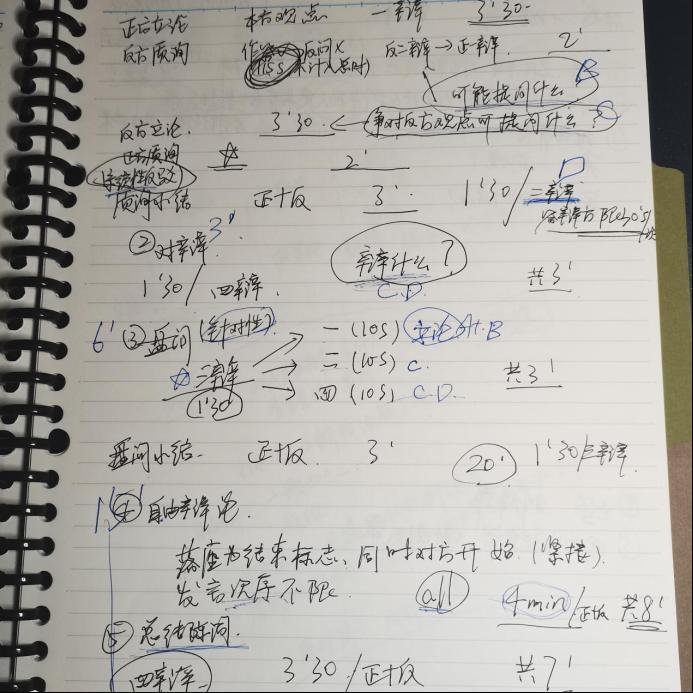 正方立论 本方观点 一辩 3'30
反方质询 反二辩→正一辩 2'
可能提问什么 B
反方立论 3'30 ← 针对反方观点可提问什么? C
正方质询 ☆ 2'
质询小结 正+反 3' 1'30/二辩 D
② 对辩 3'
辩什么?
1'30/四辩 C.D. 共3'
6' ③ 盘问 (针对性) 一 (10s) 立论 A.B
☆三辩 二 (10s) C. 共3'
1'30 四 (10s) C.D.
盘问小结 正+反 3' 20' 1'30/三辩
④ 自由辩论
落座为结束标志、同时对方开始 (紧接)
发言次序不限 all 4min/正反 共8'
⑤ 总结陈词
四辩 3'30/正+反 共7'